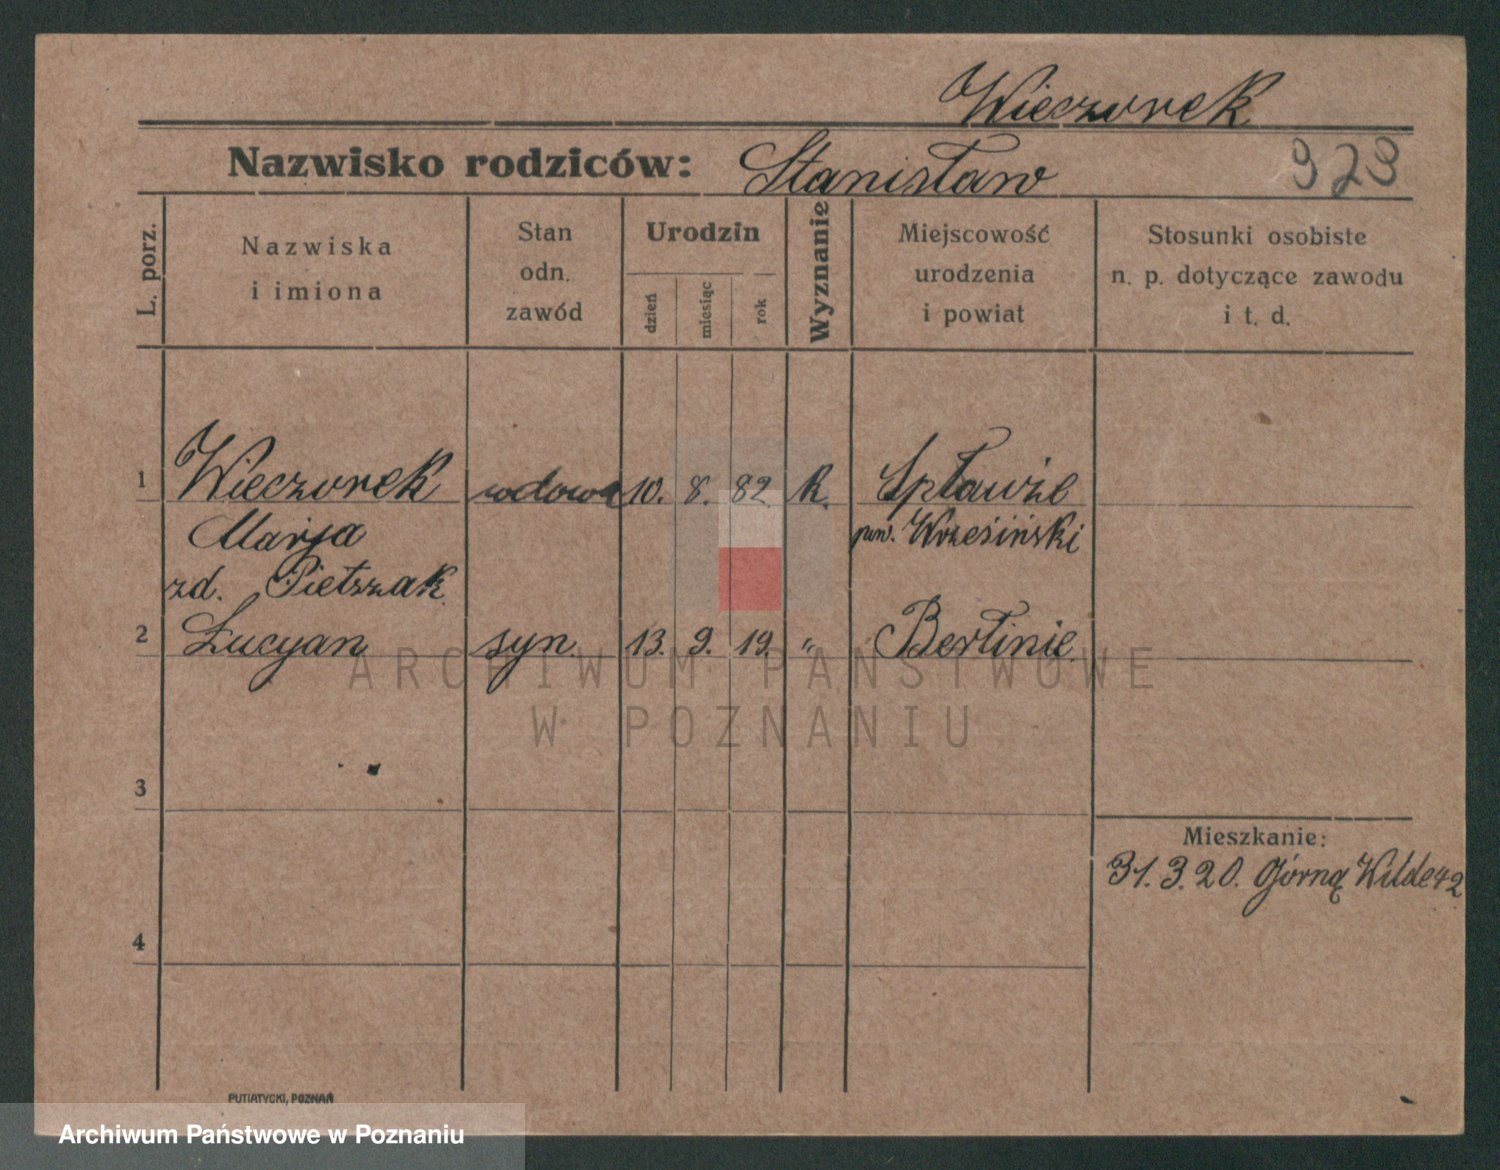 Wieczorek
Nazwisko rodziców: Stanisław 929
L. porz.
Nazwiska i imiona
Stan odn. zawód
Urodzin
dzień
miesiąc
rok
Wyznanie
Miejscowość urodzenia i powiat
Stosunki osobiste n. p. dotyczące zawodu i t. d.
1 Wieczorek wdowa 10. 8. 82. k. Spławże
Marja pow. Wrzesiński
zd. Pietszak
2 Łucyan syn 13. 9. 19. " Berlinie
ARCHIWUM PAŃSTWOWE
W POZNANIU
3
Mieszkanie:
31. 3. 20. Górną Wilde 42
4
PUTIATYCKI, POZNAŃ
Archiwum Państwowe w Poznaniu